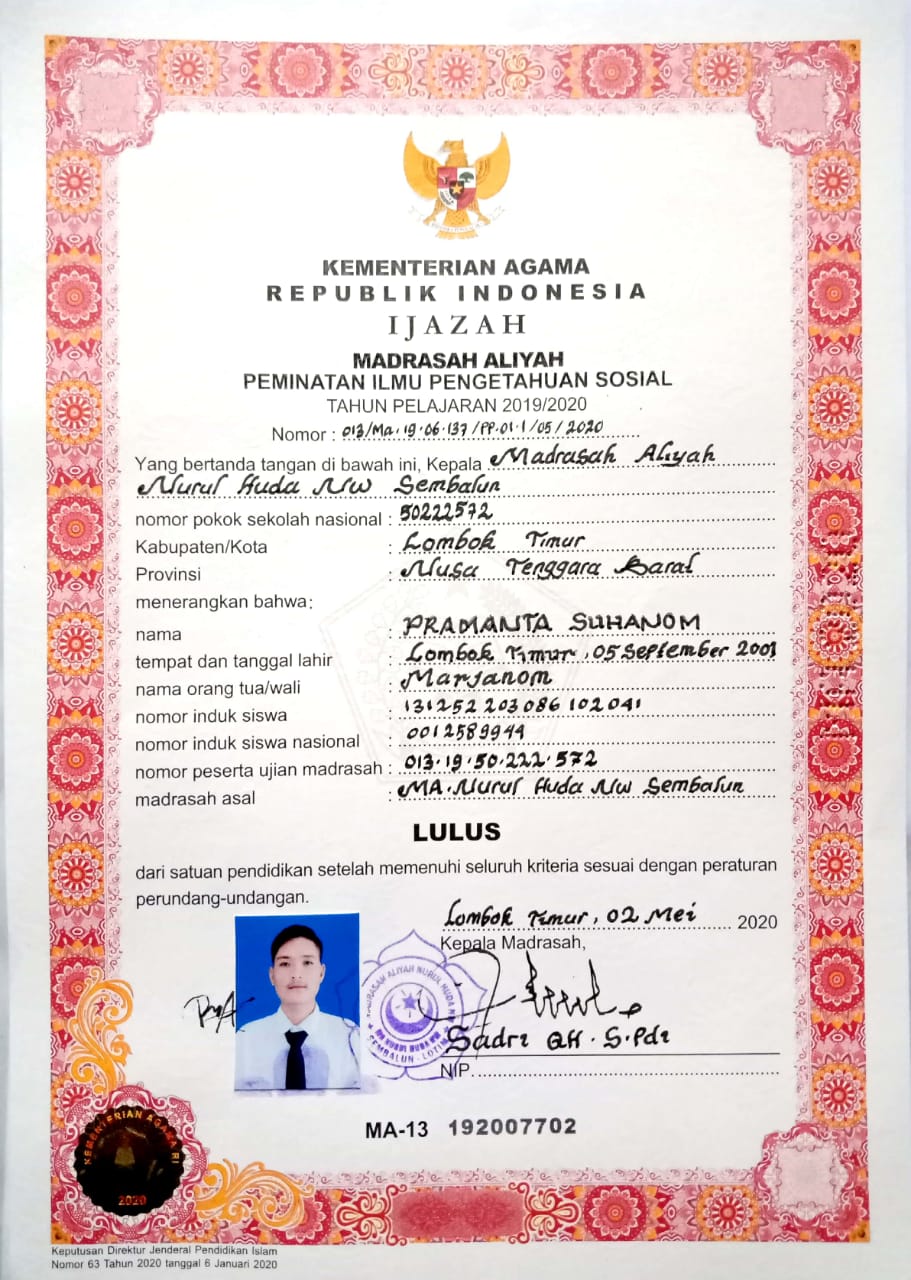 KEMENTERIAN AGAMA
REPUBLIK INDONESIA
IJAZAH
MADRASAH ALIYAH
PEMINATAN ILMU PENGETAHUAN SOSIAL
TAHUN PELAJARAN 2019/2020
Nomor : 013/Ma.19.06.137/PP.01.1/05/2020
Yang bertanda tangan di bawah ini, Kepala Madrasah Aliyah
Nurul Huda NW Sembalun
nomor pokok sekolah nasional : 50222572
Kabupaten/Kota : Lombok Timur
Provinsi : Nusa Tenggara Barat
menerangkan bahwa:
nama : PRAMANTA SUHANOM
tempat dan tanggal lahir : Lombok Timur, 05 September 2001
nama orang tua/wali : Maryanom
nomor induk siswa : 131252203086102041
nomor induk siswa nasional : 0012589944
nomor peserta ujian madrasah : 013.19.50.222.572
madrasah asal : MA. Nurul Huda NW Sembalun
LULUS
dari satuan pendidikan setelah memenuhi seluruh kriteria sesuai dengan peraturan
perundang-undangan.
Lombok Timur, 02 Mei 2020
Kepala Madrasah,
MADRASAH ALIYAH NURUL HUDA NW
SEMBALUN - LOTIM
Sadri QH. S.Pdi
NIP.
MA-13 192007702
KEMENTERIAN AGAMA RI
2020
Keputusan Direktur Jenderal Pendidikan Islam
Nomor 63 Tahun 2020 tanggal 6 Januari 2020